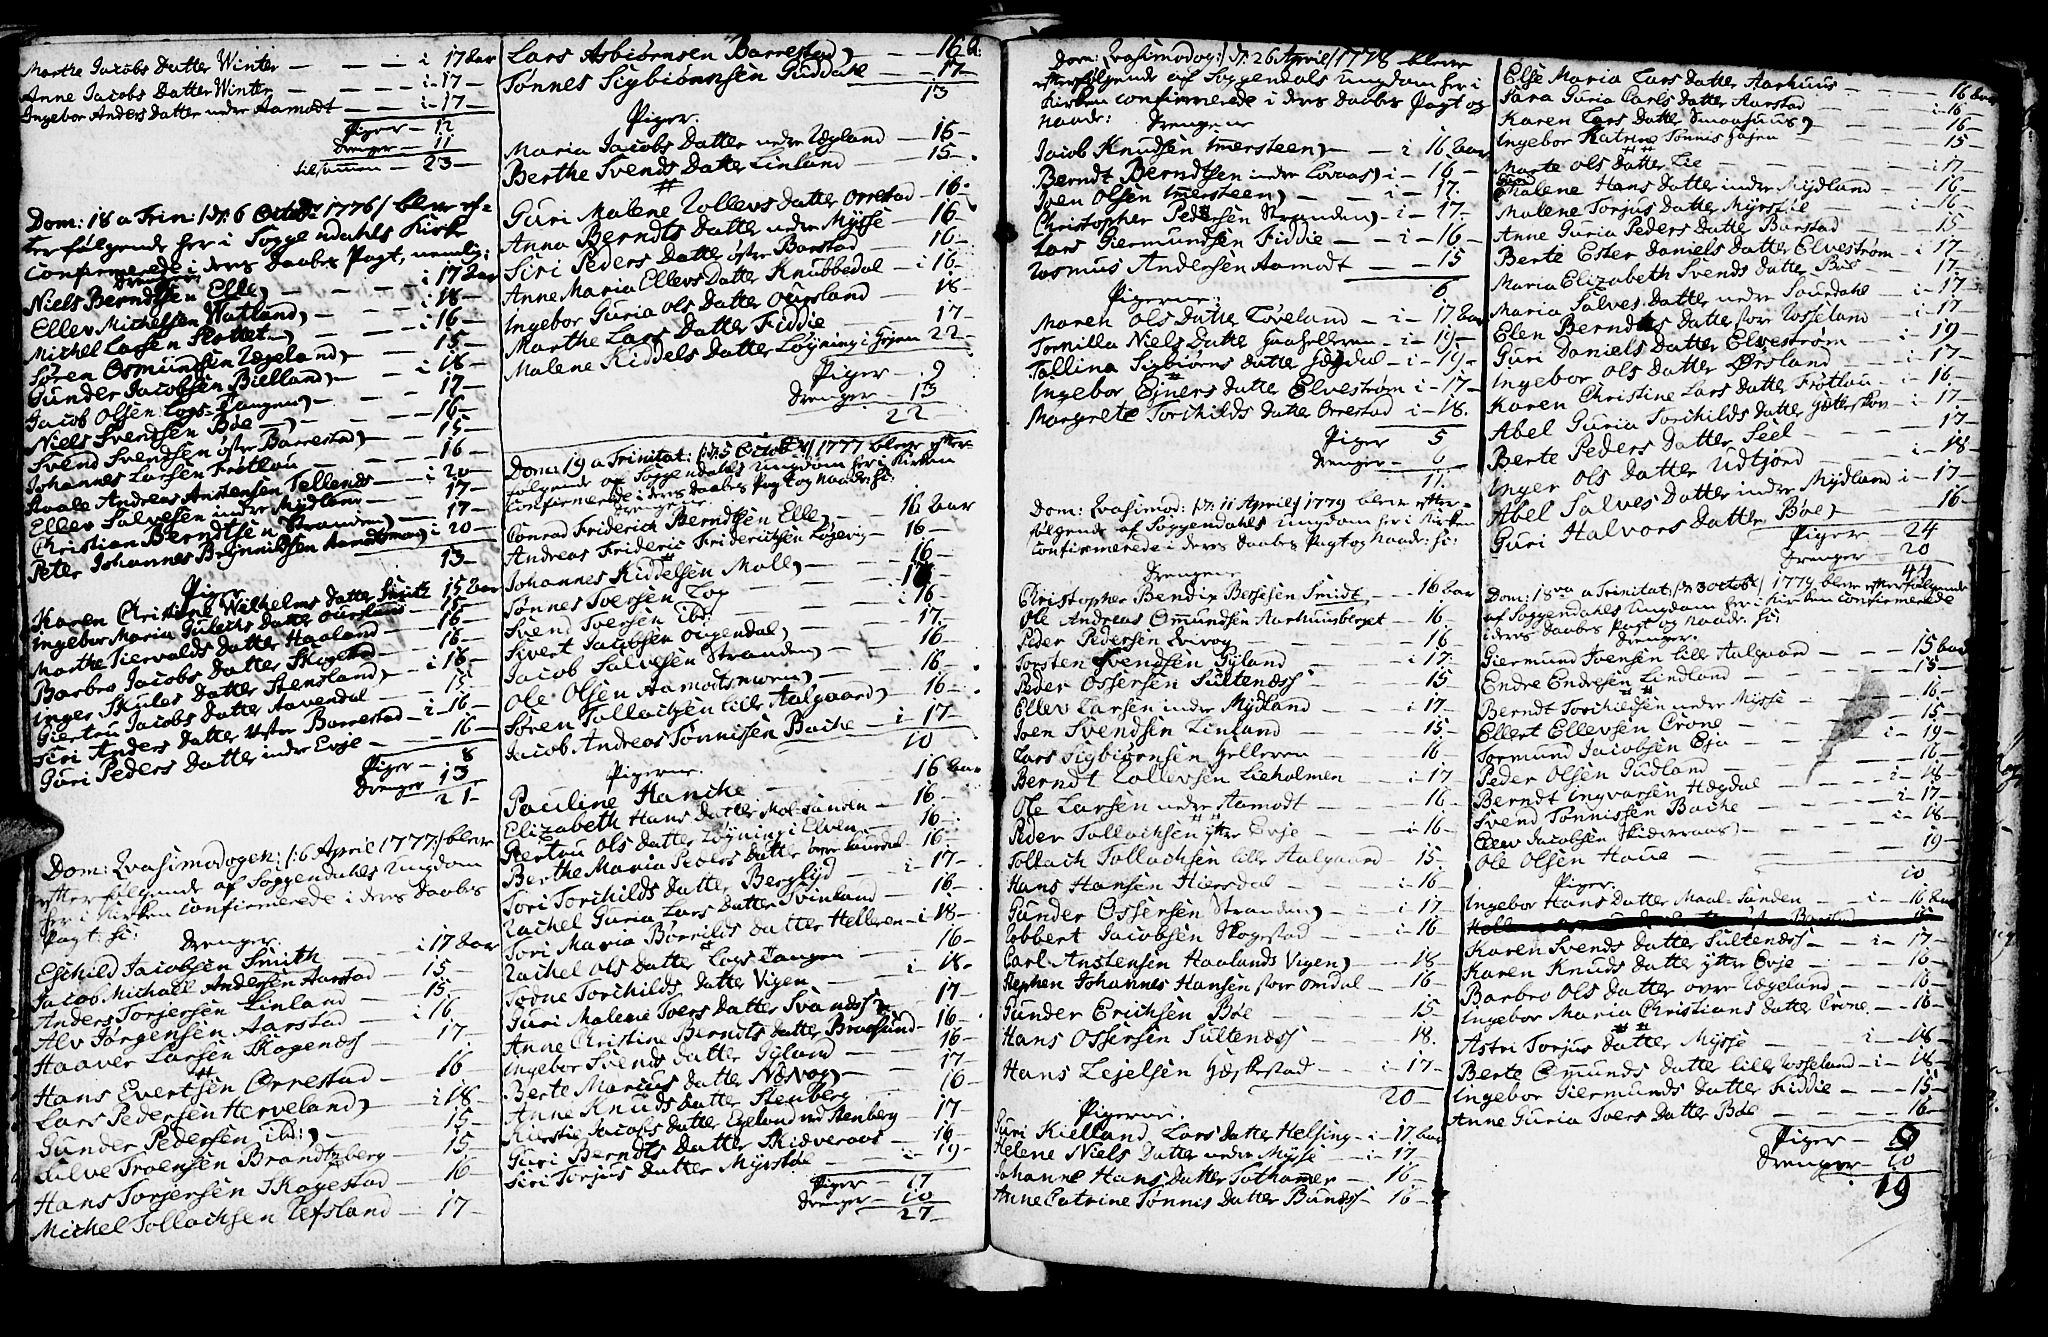 Marthe Jacobs Datter Winter — — i 17 Aar
Anne Jacobs Datter Winter — — i 17 —
Ingebor Anders Datter nedre Aamodt — i 17 —
Piger — 12
Drenger — 11
tilsammen — 23 —
Dom: 18 a Trin: /: d: 6 Octob: 1776 /: bleve ef-
terfølgende her i Soggendahls Kirke
confirmerede i deres Daabes Pagt, nemlig:
Drenger
Niels Berndtsen Elle — — i 17 Aar
Ellev Michelsen Watland — i 18 —
Michel Larsen Plettet — i 16 —
Søren Osmundsen Ægeland — 15 —
Gunder Jacobsen Bielland — i 18 —
Jacob Olsen Logs-Tangen — 17 —
Niels Svendsen Bøe — 16 —
Svend Svendsen øfre Barrestad — 15 —
Johannes Larsen Frøtlau — 16 —
Avale Andreas Anstensen Tellends — i 20 —
Ellev Salvesen indre Mydland — 17 —
Christian Berndtsen Stranden — 17 —
Peter Johannes Brÿnnildsen Aamodtsmoen i 20 —
13 —
Piger
Karen Christine Wilhelms Datter Smith 15 Aar
Ingebor Maria Gulichs Datter Oursland 15 —
Marthe Tiervalds Datter Haaland — 16 —
Barbro Jacobs Datter Skogestad — 16 —
Inger Skules Datter Stensland — i 18 —
Giertru Jacobs Datter Aavendal — 15 —
Siri Anders Datter Øfster Barrestad — i 16 —
Guri Peders Datter indre Evje — 16 —
Piger — 8
Drenger 13
21 —
Dom: Qvasimodogen: /: 6 April 1777 /: bleve
efterfølgende af Soggendahls Ungdom
her i Kirken confirmerede i deres Daabes
Pagt: hi: Drenger
Eschild Jacobsen Smith — i 17 Aar
Jacob Michael Andersen Aarstad 15 —
Anders Torjersen Linland — 15 —
Alv Jørgensen Aarstad — i 16
Haaver Larsen Skogends — 17 —
Hans Evertsen Orrestad — 16
Lars Pedersen Herveland — i 18 —
Gunder Pedersen ibd: — 15 —
Salve Troensen Brandtzberg — 15 —
Hans Torjersen Skogestad — 16
Michel Tollachsen Refsland — 17 —
Lars Asbiørnsen Barrestad — — 16 A:
Tønnes Sigbiørnsen Guddale — 17 —
13
Piger.
Maria Jacobs Datter nedre Ægeland — 16 —
Berthe Svends Datter Linland — 15 —
Guri Malene Rollevs Datter Orrestad — 16 —
Anna Berndts Datter nedre Mÿsse 16 —
Siri Peders Datter øfter Barstad — 16 —
Anne Maria Ellevs Datter Knubbedal — i 16 —
Ingebor Guria Ols Datter Oursland — 18 —
Marthe Lars Datter Fiddie — 17 —
Malene Kiddels Datter Løgning i Gryen 22 —
Piger — 9
Drenger — 13
22 —
Dom: 19 a Trinitat: /: d: 5 Octob: /: 1777 bleve efter-
følgende af Soggendahls Ungdom her i Kirken
confirmerede i deres Daabes Pagt og Naade: hi:
Drengene
Conrad Friderich Berndtsen Elle — 16 Aar
Andreas Frideric Friderichsen Løgevig — 16 —
Johannes Kiddelsen Moll — 16 —
Tønnes Iversen Log — 16
Svend Iversen ibd: — i 16 —
Sivert Jacobsen Ougendal — 17 —
Jacob Salvesen Stranden — 16 —
Ole Olsen Aamodtsmoen — 16 —
Søren Tollachsen lille Aalgaard — 16 —
Jacob Andreas Tønnissen Bache — i 17 —
10
Pigerne.
Pauline Hancke — 16 Aar
Elizabeth Hans Datter Mal-Sanden — 16 —
Giertou Ols Datter Løgning i Elven — 16 —
Berthe Maria Peders Datter øvre Sandal 16 —
Tori Torchilds Datter Berglyd — i 17 —
Rachel Guria Lars Datter Svinland — 16 —
Tori Maria Børrilds Datter Helleren — i 18 —
Rachel Ols Datter Logs Tangen — 16 —
Todne Torchilds Datter Vigen — i 18 —
Guri Malene Ivers Datter Svandss — 17 —
Anne Christine Berndts Datter Braasund — 16 —
Ingebor Svends Datter Gÿland — 16 —
Berte Marcus Datter Næwog — 17 —
Anne Knuds Datter Stenberg — 16 —
Kierstie Jacobs Datter Egeland ved Stenberg 17 —
Guri Berndts Datter Skidveraas — 16 —
Siri Torjus Datter Mÿrstøl — i 19 —
Piger — 17
Drenger — 10
27 —
Dom: Qvasimodog: /: d: 26 April /: 1778 bleve
efterfølgende af Soggendals Ungdom her i
Kirken confirmerede i deres Daabes Pagt og
Naade: Drengene
Jacob Knudsen Immersteen — i 16 Aar
Berndt Berndtsen indre Lovaas i — 16 —
Iven Olsen Immersteen — i — 17.
Christopher Pedersen Stranden — i — 17 —
Lars Giermundsen Fiddie — i — 16 —
Rasmus Andersen Aamodt — 15
6
Pigerne:
Maren Ols Datter Tøseland — i — 17 Aar
Tornilla Niels Datter Gaasehelleren — i — 19 —
Tallina Sigbiørns Datter Hægdal — i — 19 —
Ingebor Einers Datter Elvestrøm i — 17 —
Margrete Torchilds Datter Orrestad i — 18.
Piger 5
Drenger — 6
11.
Dom: Qvasimod: /: d: 11 April /: 1779 bleve efter-
følgende af Soggendahls Ungdom her i Kirken
confirmerede i deres Daabes Pagt og Naade: hi:
Drengene
Christopher Bendix Bessesen Smidt — 16 Aar
Ole Andreas Ommundsen Aarhuusberget — 16
Peder Pedersen Qvivog — 16 —
Torsten Svendsen Gÿland — i 17 —
Peder Ossersen Sultendss — 15
Ellev Larsen indre Mÿdland — i 17 —
Iven Svendsen Linland — 15 —
Lars Sigbiørnsen Helleren — 16 —
Berndt Rollevsen Lieholmen — i 17
Ole Larsen nedre Aamodt — 16 —
Peder Tollachsen ÿtter Evje — i 16 —
Tollach Tollachsen lille Aalgaard 15 —
Hans Hansen Hæsdal — i 16 —
Gunder Ossersen Stranden — i 17
Robbert Jacobsen Skogestad — i 16
Carl Anstensen Haalands Vigen — 18 —
Stephen Johannes Hansen store Omdal — 16
Gunder Erichsen Bøe — 15
Hans Ossersen Sultendss — 18.
Hans Lejelsen Gæskestad — i 17 —
20 —
Pigerne.
Guri Kielland Lars Datter Helsing — i — 17 Aar
Helene Niels Datter nedre Mÿsse — i 17
Johanne Hans Datter Tothamer — 16 —
Anne Catrine Tønnis Datter Bundss 16 —
Else Maria Lars Datter Aarhuus — 16 Aar
Sara Guria Carls Datter Aarstad — i 16 —
Karen Lars Datter Smaahuus — 16 —
Ingebor Katrine Tønnis Hafen — 15 —
Marte Ols Datter Lie — i 17
Malene Hans Datter indre Mÿdland — 16 —
Malene Torjus Datter Mÿrstøl — i — 16 —
Anne Guria Peders Datter Barstad — 15 —
Berte Ester Daniels Datter Elvestrøm — i 17 —
Maria Elizabeth Svends Datter Bøe — 17 —
Maria Salves Datter nedre Saurdahl — i — 17
Elen Berndts Datter store Rosseland — i 17
Guri Daniels Datter Elvestrøm — i 19 —
Ingebor Ols Datter Ørsland — i — 17 —
Karen Christine Lars Datter Frøtlau — i — 16
Abel Guria Torchilds Datter Gÿtterskov — i — 17 —
Berte Peders Datter Seel — 17 —
Inger Ols Datter Udtjord — i — 18 —
Abel Salves Datter indre Mÿdland i — 17 —
Guri Halvors Datter Bøe — 16 —
Piger — 24
Drenger — 20
44
Dom: 18va a Trinitat: /: d: 3 Octob: /: 1779 bleve efterfølgende
af Soggendahls Ungdom her i Kirken confirmerede
i deres Daabes Pagt og Naade: hi:
Drenger.
Giermund Ivensen lille Aalgaard — 15 Aar
Endre Endresen Lindland — 18 —
Berndt Torchildsen nedre Mÿsse — 16 —
Ellert Ellevsen Crone — 15 —
Tormund Jacobsen Eja — i — 19 —
Peder Olsen Gudland — 16 —
Berndt Ingvarsen Hægdal — i — 18 —
Svend Tønnissen Bache — i — 17 —
Ellev Jacobsen Skidveraas — i — 18 —
Ole Olsen Haue — 19 —
10
Piger.
Ingebor Hans Datter Maal-Sanden — i — 16 Aar
Karen Svends Datter Sultendss — i — 17 —
Karen Knuds Datter ÿtter Evje — 16 —
Barbro Ols Datter øvre Ægeland — 16 —
Ingebor Maria Christians Datter Crone — 16 —
Astri Torjus Datter Mÿsse — i — 18 —
Berte Ommunds Datter lille Rosseland — i — 18 —
Ingebor Giermunds Datter Fiddie — 15 —
Anne Guria Ivers Datter Bøe — 16 —
Piger — 9
Drenger — 10
19